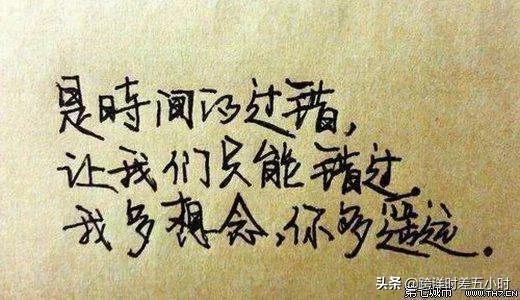 是時间的过错,
让我们只能错过.
我多想念,你多遥远.
头条 @跨洋时差五小时
第七城市 WWW.TH7.CN